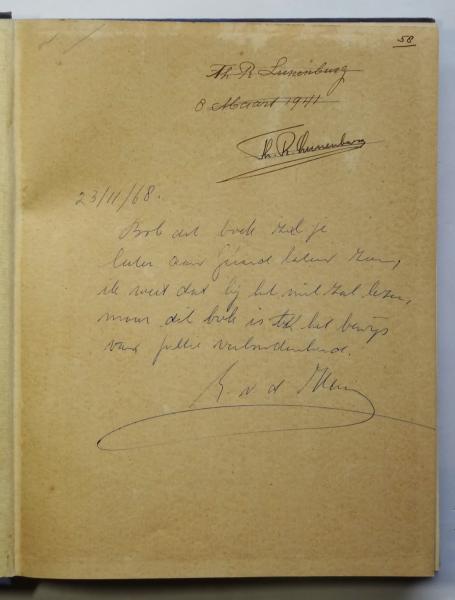 58
Th R Lunenburg
8 Maart 1941
Th. R. Lunenburg
23/11/68.
Bob dit boek zul je
later aan laten zien,
ik weet dat hij het niet zal lezen,
maar dit boek is het bewijs
van jullie verbondenheid.
v d